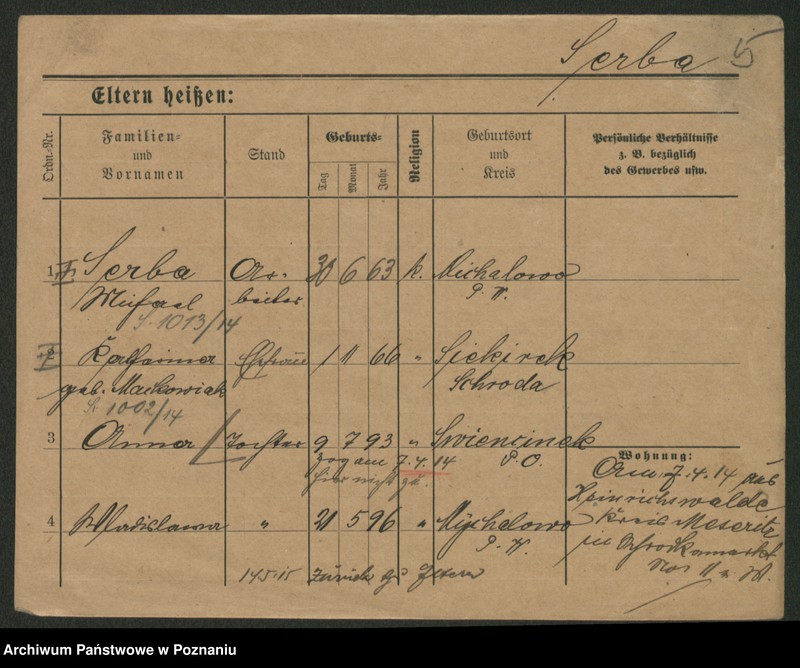 Serba 5
Eltern heißen:
Ordn.-Nr.
Familien- und Vornamen
Stand
Geburts-
Tag
Monat
Jahr
Religion
Geburtsort und Kreis
Persönliche Verhältnisse
z. B. bezüglich
des Gewerbes usw.
1 Serba Ar- 30 6 63 k. Michalowo
Michael beiter P. W.
S. 1013/14
2 Katharina Ehefrau 1 11 66 " Siekirek
geb. Mackowiak Schroda
S. 1002/14
3 Anna Tochter 9 7 93 " Swiencinek
zog am 7.4.14 P. O.
hier nicht zu.
Wohnung:
Am 7.4.14 aus
Heinrichswalde
Kreis Meseritz
in
4 Wladislawa " 21 5 96 " Mychalowo
P. W.
14.5.15 Zurück zu Eltern
Archiwum Państwowe w Poznaniu